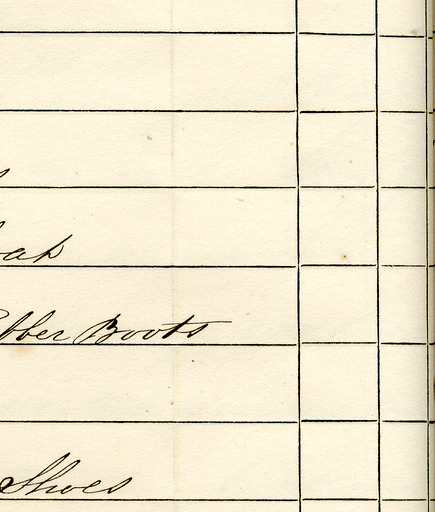 bber Boots
Shoes